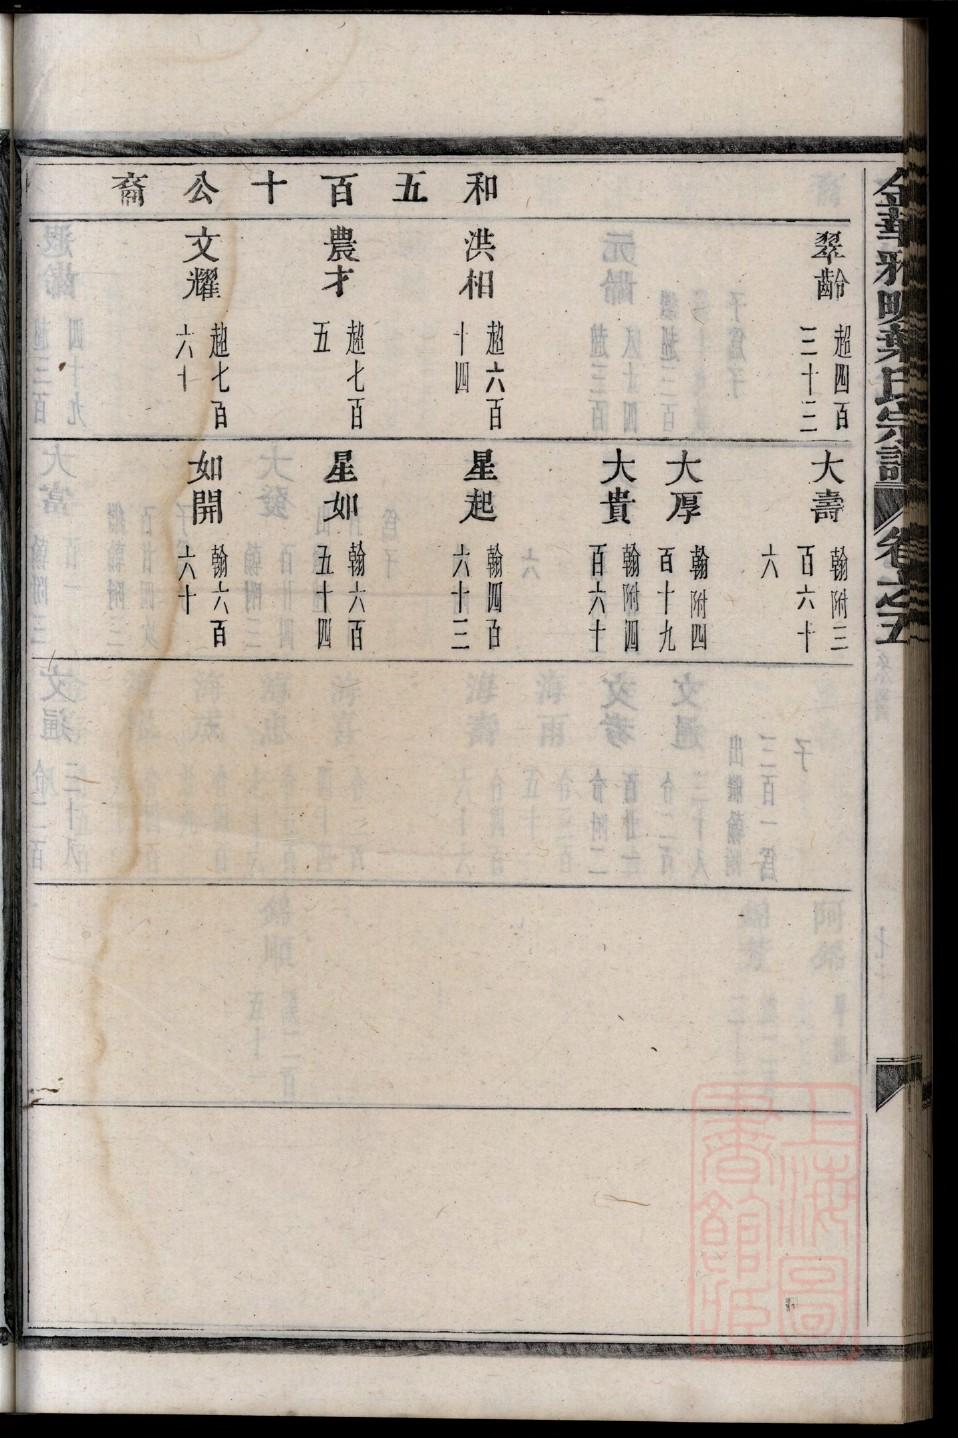 金華雅畈葉氏宗譜 卷之五
和五百十公裔
翠齡 超四百三十三
洪相 超六百十四
農才 超七百五
文耀 超七百六十
大壽 翰附三百六十六
大厚 翰附四百十九
大貴 翰附四百六十
星起 翰四百六十三
星如 翰六百五十四
如開 翰六百六十
上海圖書館藏